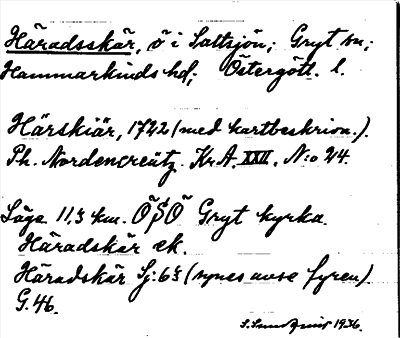 Häradsskär, ö i Saltsjön; Gryt sn;
Hammarkinds hd; Östergötl. l.
Härskiär, 1722 (med kartbeskrivn.).
Ph. Nordencreütz. Kr.A. XXII, N:o 24.
Läge 11,3 km. ÖSÖ Gryt kyrka.
Häradskär ek.
Häradskär Sj: 63 (synes avse fyren).
G. 46.
1936.